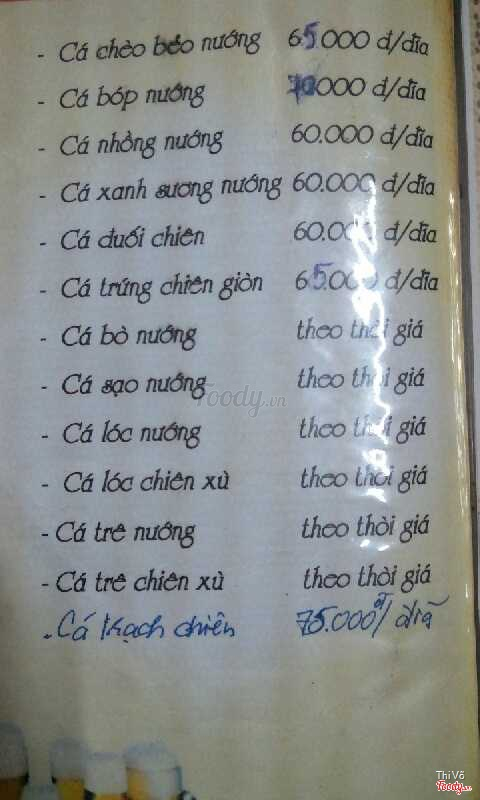 - Cá chẻo béo nướng 65.000 đ/đĩa
- Cá bóp nướng 70000 đ/đĩa
- Cá nhồng nướng 60.000 đ/đĩa
- Cá xanh sương nướng 60.000 đ/đĩa
- Cá đuối chiên 60.000 đ/đĩa
- Cá trứng chiên giòn 65.000 đ/đĩa
- Cá bò nướng theo thời giá
- Cá sạo nướng theo thời giá
Foody.vn
- Cá lóc nướng theo thời giá
- Cá lóc chiên xù theo thời giá
- Cá trê nướng theo thời giá
- Cá trê chiên xù theo thời giá
- Cá kạch chiên 75.000đ/đĩa
Thi Võ
Foody.vn